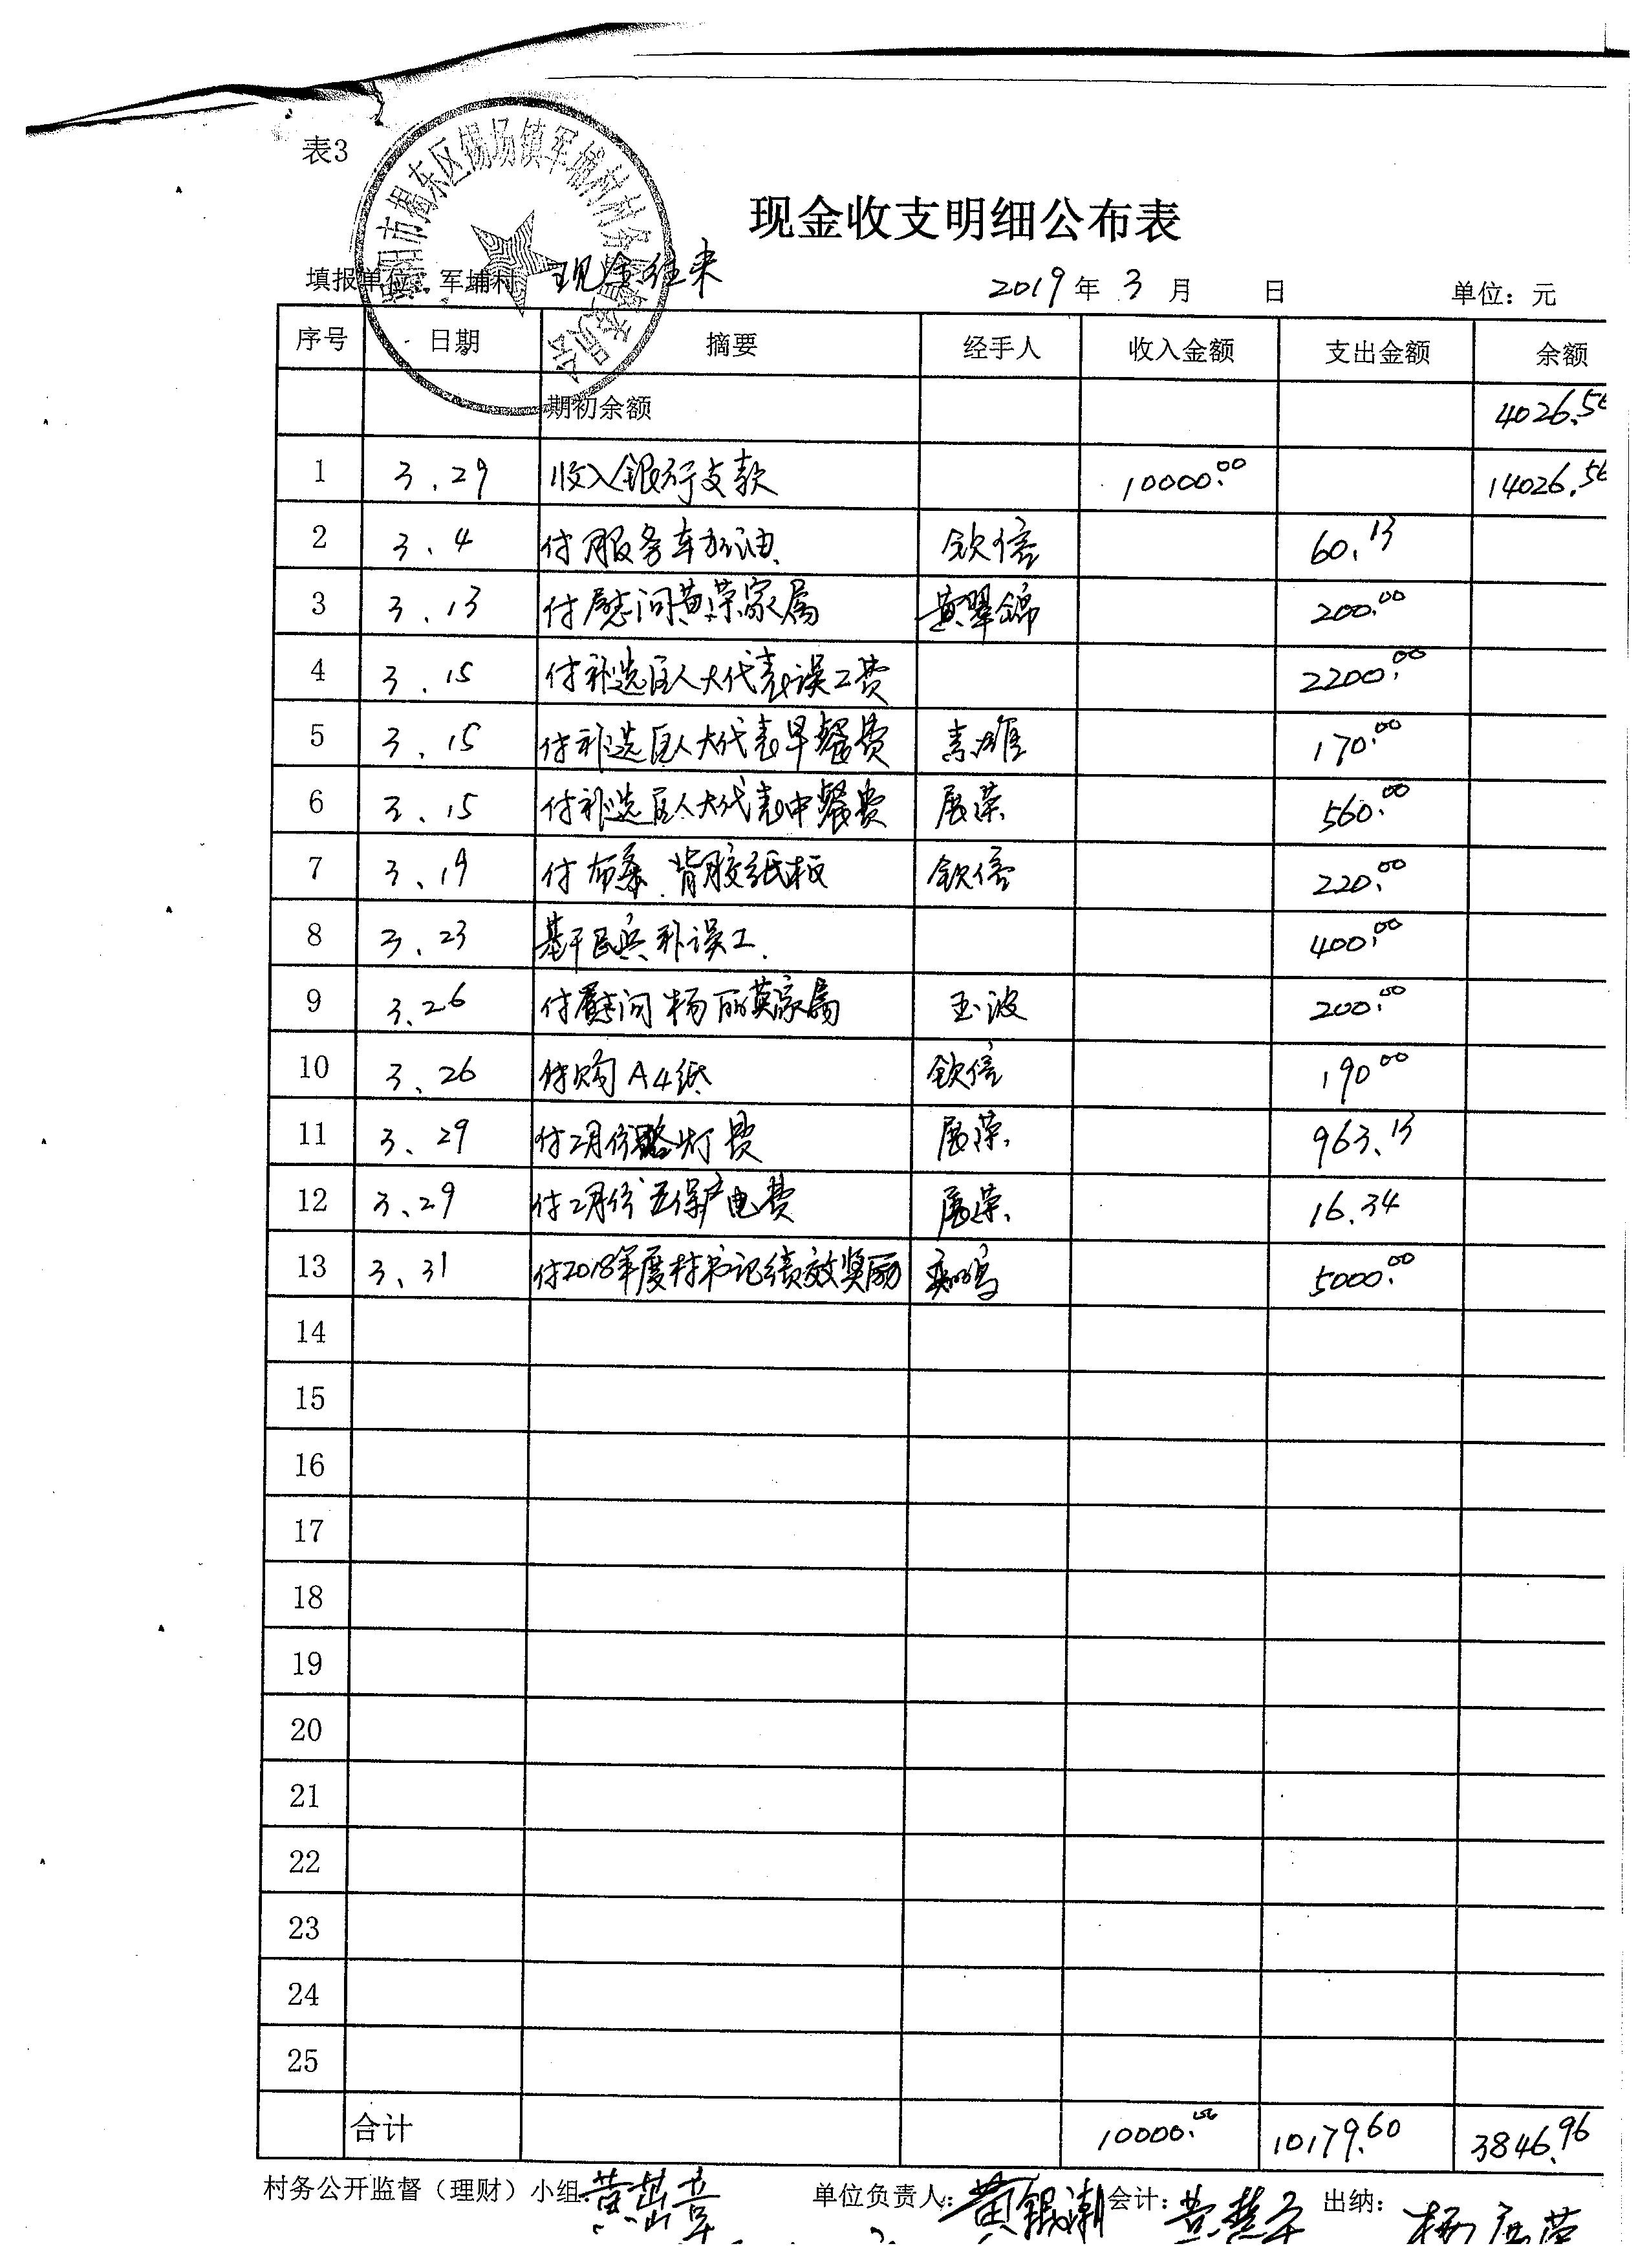 表3
揭阳市揭东区锡场镇军埔村村务监督委员会
现金收支明细公布表
填报单位：军埔村 现金往来 2019年3月 日 单位：元
序号 日期 摘要 经手人 收入金额 支出金额 余额
期初余额 4026.56
1 3.29 收入银行支款 10000.00 14026.56
2 3.4 付服务车加油 钦信 60.13
3 3.13 付慰问黄荣家属 黄翠锦 200.00
4 3.15 付补选区人大代表误工费 2200.00
5 3.15 付补选区人大代表早餐费 素雄 170.00
6 3.15 付补选区人大代表中餐费 展荣 560.00
7 3.19 付布条.背胶纸板 钦信 220.00
8 3.23 基干民兵补误工. 400.00
9 3.26 付慰问杨丽英家属 玉波 200.00
10 3.26 付购A4纸 钦信 190.00
11 3.29 付2月份路灯费 展荣 963.13
12 3.29 付2月份五保户电费 展荣 16.34
13 3.31 付2018年度村书记绩效奖励 5000.00
14
15
16
17
18
19
20
21
22
23
24
25
合计 10000.00 10179.60 3846.96
村务公开监督（理财）小组 单位负责人：黄锟潮 会计： 出纳：杨展荣